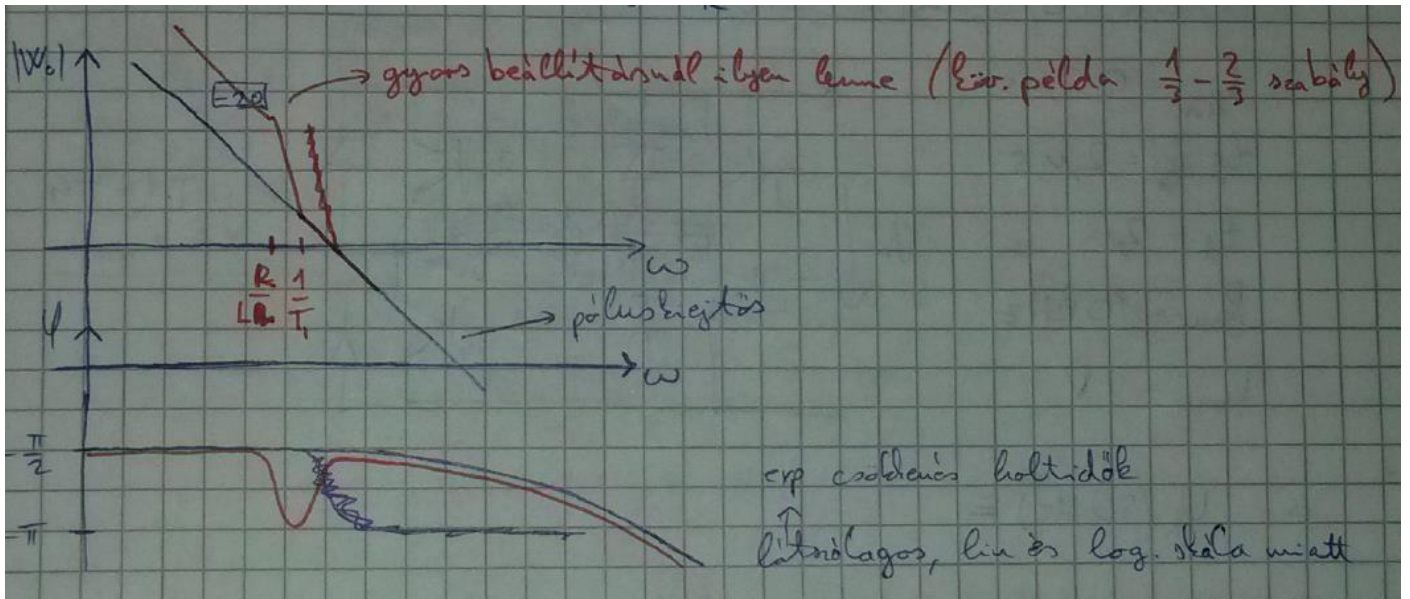 |W₀|
gyors beállításnál ilyen lenne (köv. példa 1/3 - 2/3 szabály)
-20
ω
R/L 1/T₁
φ
póluskiejtős
ω
-π/2
exp csökkenés holtidők
-π
látszólagos, lin és log. skála miatt